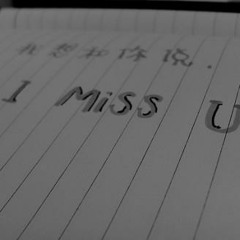 我想和你说.
I MiSS U